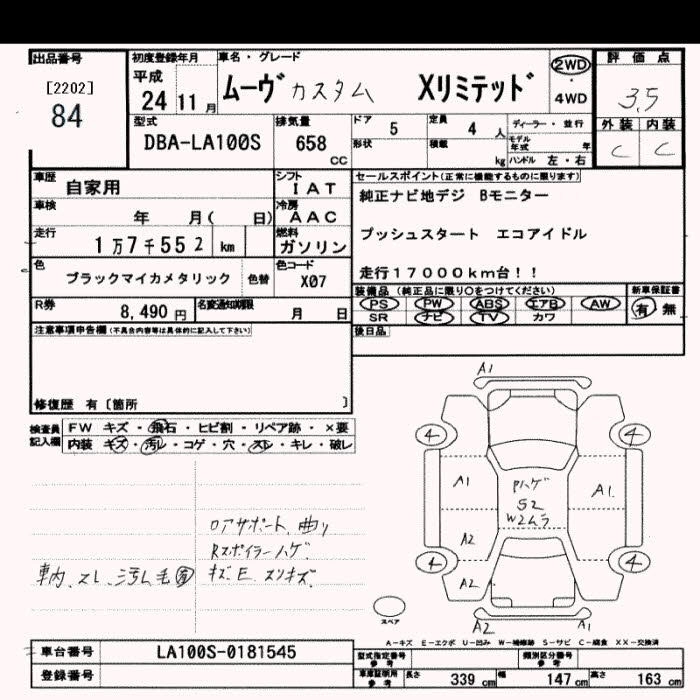 出品番号 初度登録年月 車名・グレード 評価点
[2202] 84
平成 24 11月
ムーヴ カスタム Xリミテッド
2WD ・ 4WD
3.5
外装 内装
C C
型式 DBA-LA100S
排気量 658 CC
ドア 5 定員 4人 ディーラー・並行
形状 積載 kg モデル年式 年
ハンドル 左・右
車歴 自家用
シフト IAT
セールスポイント(正常に機能するものに限ります)
車検 年 月( 日)
冷房 AAC
純正ナビ地デジ Bモニター
走行 1万7千552 km
燃料 ガソリン
プッシュスタート エコアイドル
色 ブラックマイカメタリック 色替
色コード X07
走行17000km台!!
R券 8,490円 名変通知期限 月 日
装備品(純正品に限り○をつけてください) 新車保証書
PS PW ABS エアB AW 有・無
SR ナビ TV カワ
注意事項申告欄(不具合内容等は具体的に記入して下さい)
後日品
修復歴 有〔箇所 〕
検査員記入欄
FW キズ・飛石・ヒビ割・リペア跡・×要
内装 キズ・汚レ・コゲ・穴・スレ・キレ・破レ
ロアサポート、曲り
Rスポイラーハゲ
車内、スレ、汚れ毛 キズ、E、スリキズ
A1
4 4
A1 Pハゲ A1
S2
W2ムラ
A2
4 4
A2
A2 A1
スペア
A-キズ E-エクボ U-凹み W-補修跡 S-サビ C-腐食 XX-交換済
車台番号 LA100S-0181545
型式指定番号 参考 類別区分番号 参考
登録番号
車庫証明用 参考 長さ 339cm 幅 147cm 高さ 163cm